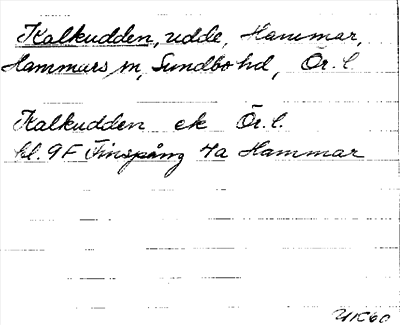 Kalkudden, udde, Hammar,
Hammars sn, Sundbo hd, Ör. l.
Kalkudden ek Ör. l.
bl. 9F Finspång 4a Hammar
UK60